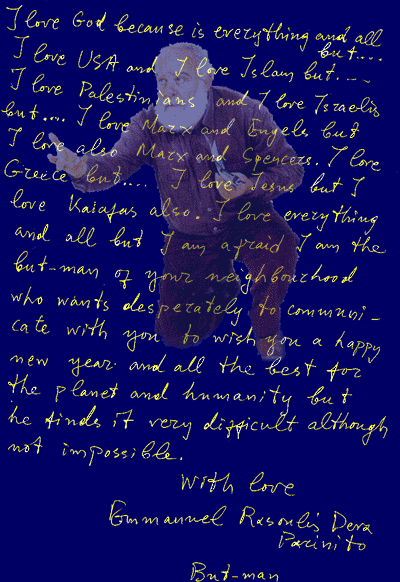 I love God because is everything and all
but....
I love USA and I love Islam but....
I love Palestinians and I love Israelis
but.... I love Marx and Engels but
I love also Marx and Spencers. I love
Greece but.... I love Jesus but I
love Kaiafas also. I love everything
and all but I am afraid I am the
but-man of your neighbourhood
who wants desperately to communi-
cate with you to wish you a happy
new year and all the best for
the planet and humanity but
he finds it very difficult although
not impossible.
With love
Emmanuel Rasoulis Deva
Parinito
But-man